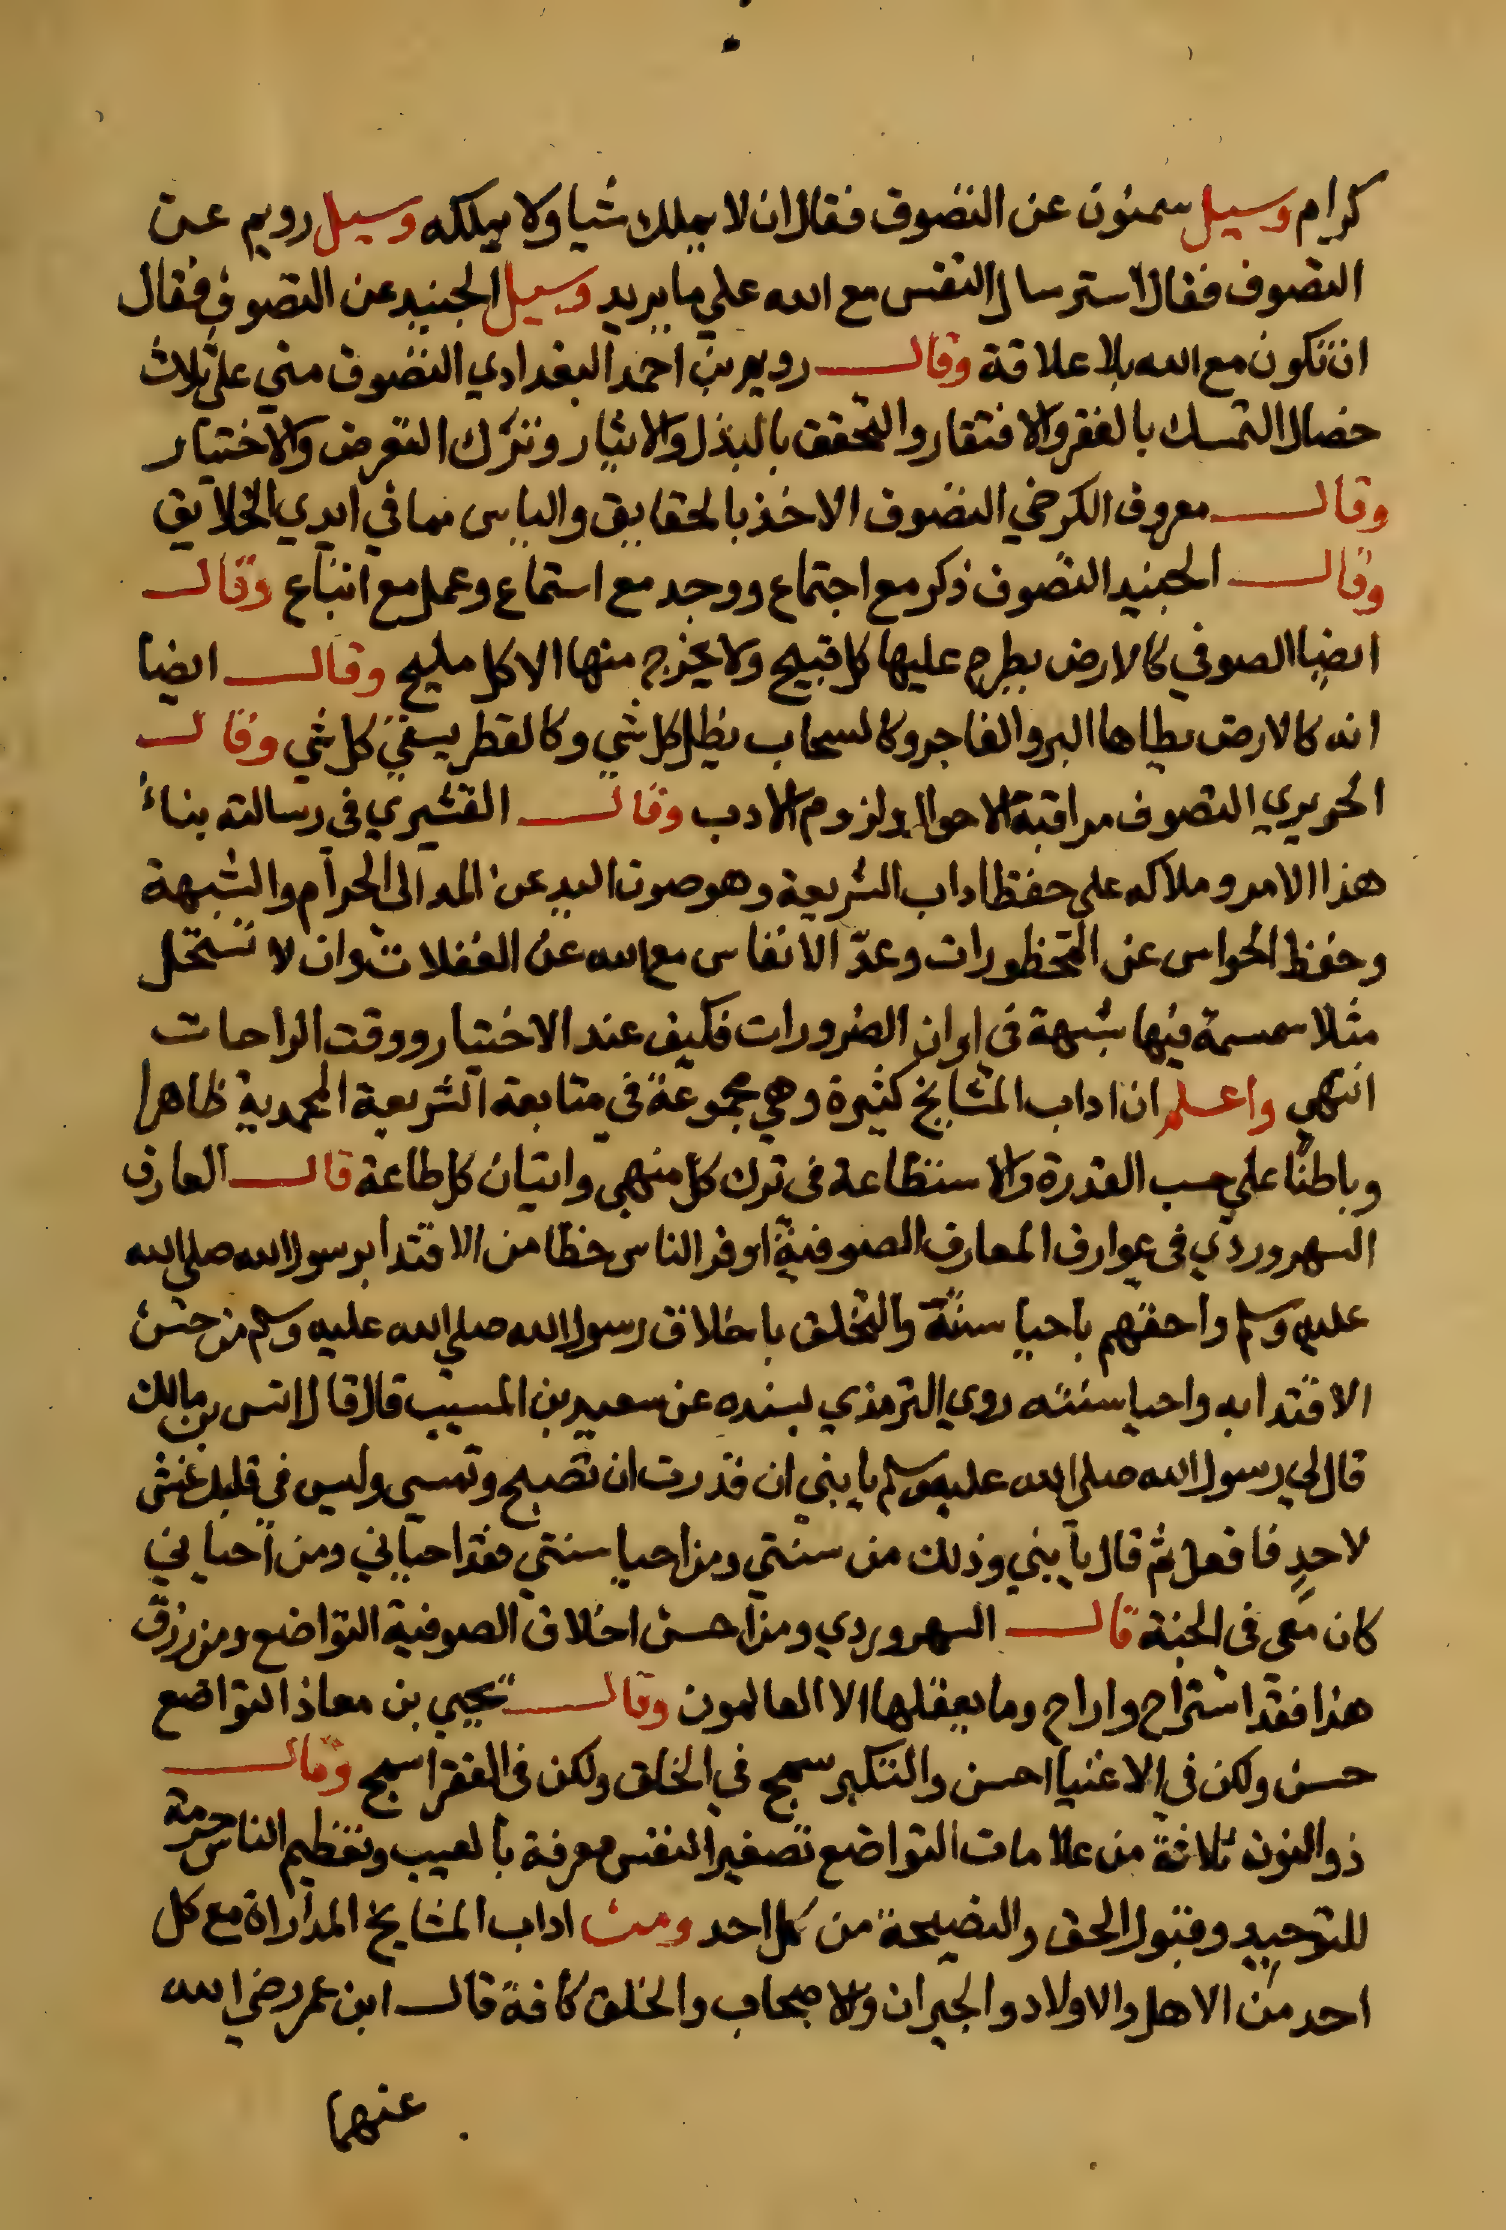 كرام وسيل سمنون عن التصوف فقال ان لا يملك شيا ولا يملكه وسيل رويم عن
التصوف فقال استرسال النفس مع الله علي ما يريد وسيل الجنيد عن التصوف فقال
ان تكون مع الله بلا علاقة وقال رويم بن احمد البغدادي التصوف مبني علي ثلاث
خصال التمسك بالفقر والافتقار والتحقق بالبذل والايثار وترك التعرض والاختيار
وقال معروف الكرخي التصوف الاخذ بالحقايق والياس مما في ايدي الخلايق
وقال الجنيد التصوف ذكر مع اجتماع ووجد مع استماع وعمل مع اتباع وقال
ايضا الصوفي كالارض يطرح عليها كل قبيح ولا يخرج منها الا كل مليح وقال ايضا
انه كالارض يطاها البر والفاجر وكالسحاب يظل كل شي وكالقطر يسقي كل شي وقال
الحريري التصوف مراقبة الاحوال ولزوم الادب وقال القشيري في رسالته بناء
هذا الامر وملاكه علي حفظ اداب الشريعة وهو صون اليد عن المد الى الحرام والشبهة
وحفظ الحواس عن المحظورات وعدّ الانفاس مع الله عن الغفلات وان لا تستحل
مثلا سمسمة فيها شبهة في اوان الضرورات فكيف عند الاختيار ووقت الراحات
انتهي واعلم ان اداب المشايخ كثيرة وهي مجموعة في متابعة الشريعة المحمدية ظاهرا
وباطنًا علي حسب القدرة والاستطاعة في ترك كل منهي واتيان كل طاعة قال العارف
السهروردي في عوارف المعارف الصوفية اوفر الناس حظا من الاقتدا برسول الله صلي الله
عليه وسلم واحقهم باحيا سنته والتخلق باخلاق رسول الله صلي الله عليه وسلم من حسن
الاقتدا به واحيا سنته روي الترمذي بسنده عن سعيد بن المسيب قال قال انس بن مالك
قال لي رسول الله صلي الله عليه وسلم يا بني ان قدرت ان تصبح وتمسي وليس في قلبك غش
لاحدٍ فافعل ثم قال يا بني وذلك من سنتي ومن احيا سنتي فقد احياني ومن احياني
كان معي في الجنة قال السهروردي ومن احسن اخلاق الصوفية التواضع ومن رزق
هذا فقد استراح واراح وما يعقلها الا العالمون وقال يحيي بن معاذ التواضع
حسن ولكن في الاغنيا احسن والتكبر سمج في الخلق ولكن في الفقر اسمج وقال
ذو النون ثلاثة من علامات التواضع تصغير النفس معرفة بالعيب وتعظيم الناس حرمة
للتوحيد وقبول الحق والنصيحة من كل احد ومن اداب المشايخ المداراة مع كل
احد من الاهل والاولاد والجيران والاصحاب والخلق كافة قال ابن عمر رضي الله
عنهما